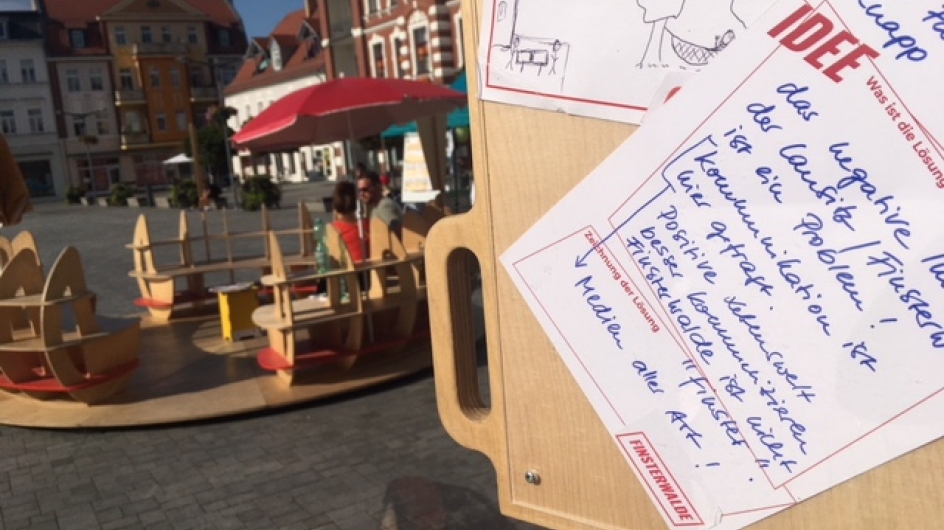 knapp
IDEE
Was ist die Lösung
das negative
der Lausitz / Finsterw
ist ein Problem!
Kommunikation ist
hier gefragt.
Positive Lebenswelt
besser kommunizieren
Finsterwalde ist nicht
"finster".
Medien aller Art!
Zeichnung der Lösung
FINSTERWALDE